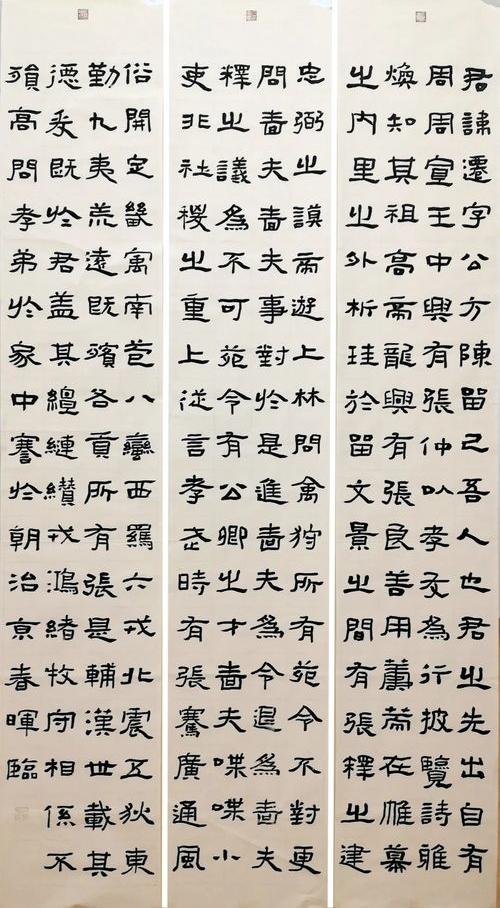 君諱遷字公方陳留己吾人也君之先出自有
周周宣王中興有張仲以孝友為行披覽詩雅
煥知其祖高帝龍興有張良善用籌策在帷幕
之內里之外析珪於留文景之間有張釋之建
忠弼之謨帝遊上林問禽狩所有苑令不對更
問嗇夫嗇夫事對於是進嗇夫為令退為嗇夫
釋之議為不可苑令有公卿之才嗇夫喋喋小
吏非社稷之重上從言孝武時有張騫廣通風
俗開定畿寓南苞八蠻西羈六戎北震五狄東
勤九夷荒遠既殯各貢所有張是輔漢世載其
德爰既於君蓋其繵縺纘戎鴻緒牧守相係不
殞高問孝弟於家中謇於朝治京春暉臨